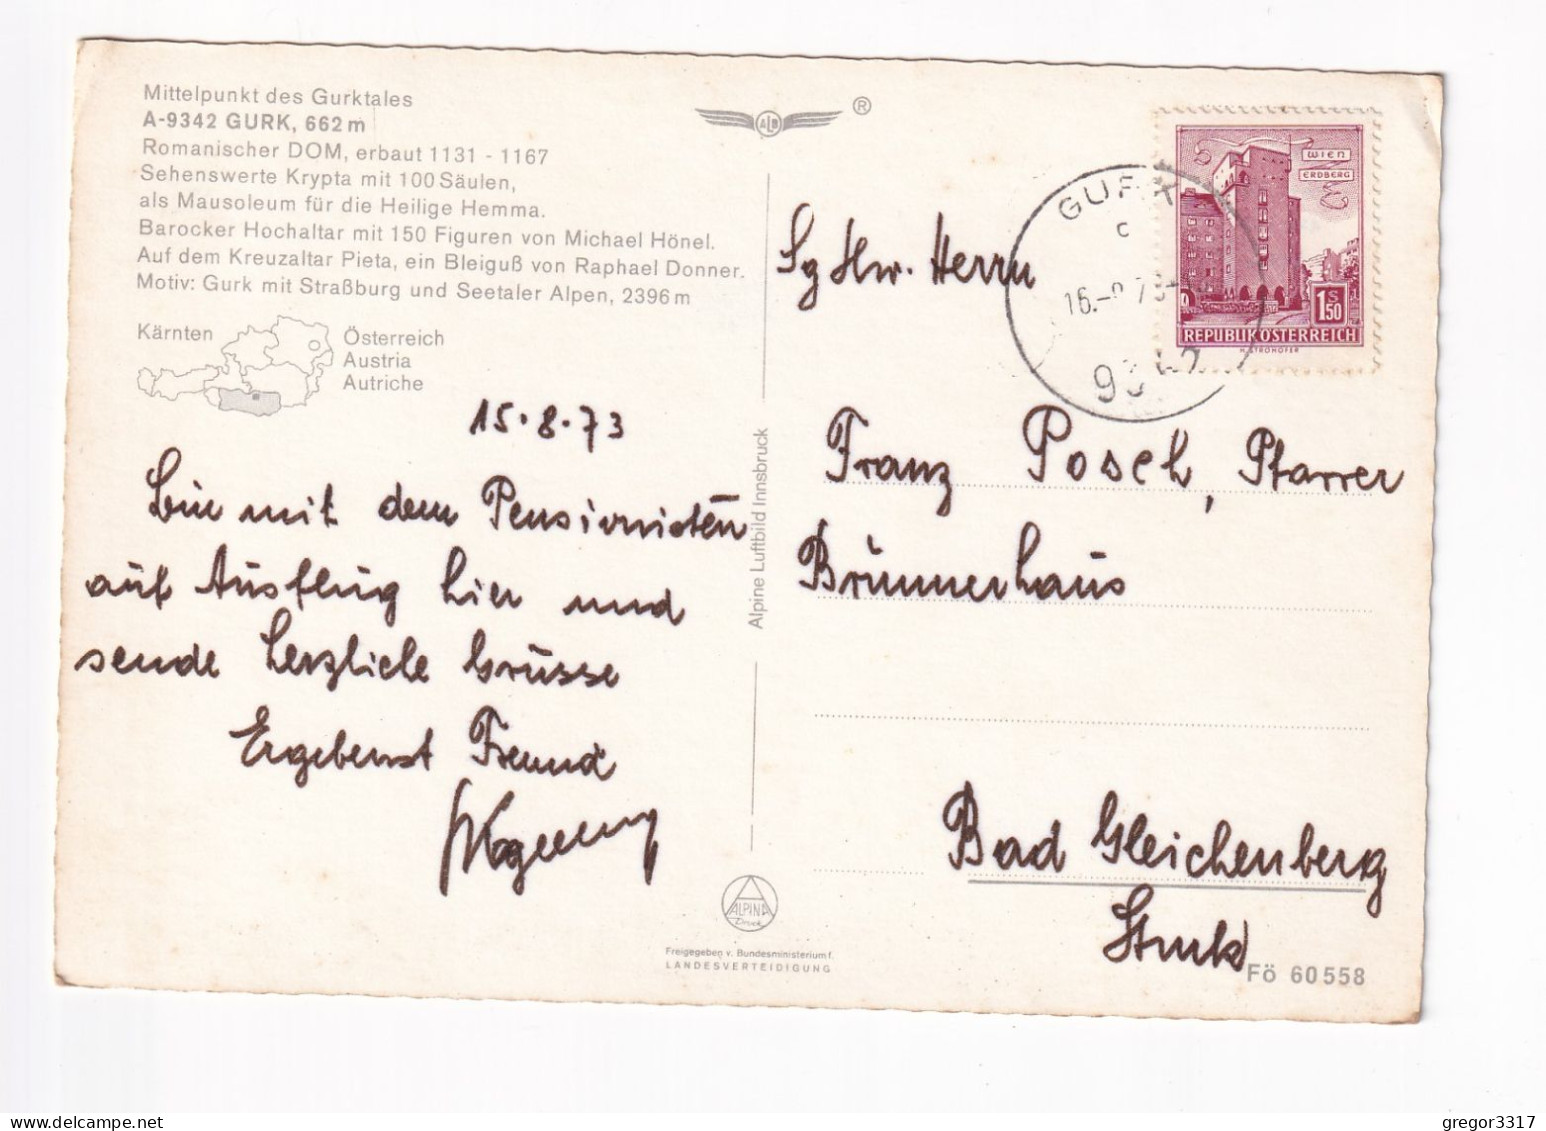 Mittelpunkt des Gurktales
A-9342 GURK, 662 m
Romanischer DOM, erbaut 1131 - 1167
Sehenswerte Krypta mit 100 Säulen,
als Mausoleum für die Heilige Hemma.
Barocker Hochaltar mit 150 Figuren von Michael Hönel.
Auf dem Kreuzaltar Pieta, ein Bleiguß von Raphael Donner.
Motiv: Gurk mit Straßburg und Seetaler Alpen, 2396 m
Kärnten
Österreich
Austria
Autriche
15.8.73
Bin mit dem Pensionisten
auf Ausflug hier und
sende herzliche Grüsse
Ergebenst Freund
Alpine Luftbild Innsbruck
ALPINA
Druck
Freigegeben v. Bundesministerium f.
LANDESVERTEIDIGUNG
ALB
®
WIEN
ERDBERG
1 S 50
REPUBLIK ÖSTERREICH
H. STROHOFER
GURK
c
9342
Sg Hw. Herrn
Franz Posch, Pfarrer
Brünnerhaus
Bad Gleichenberg
Stmk
Fö 60 558
gregor3317